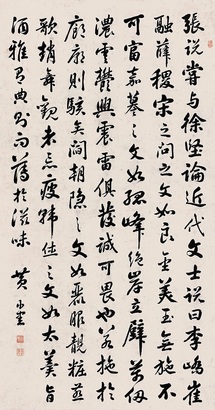 張說嘗與徐堅論近代文士說曰李嶠崔
融薛稷宋之問之文如良金美玉無施不
可富嘉謨之文如孤峰絕岸立壁萬仞
濃雲鬱興震雷俱發誠可畏也若施於
廊廟則駭矣閻朝隱之文如麗服靚粧燕
歌趙舞觀者忘疲韓休之文如太羹旨
酒雅有典則而薄於滋味 黄